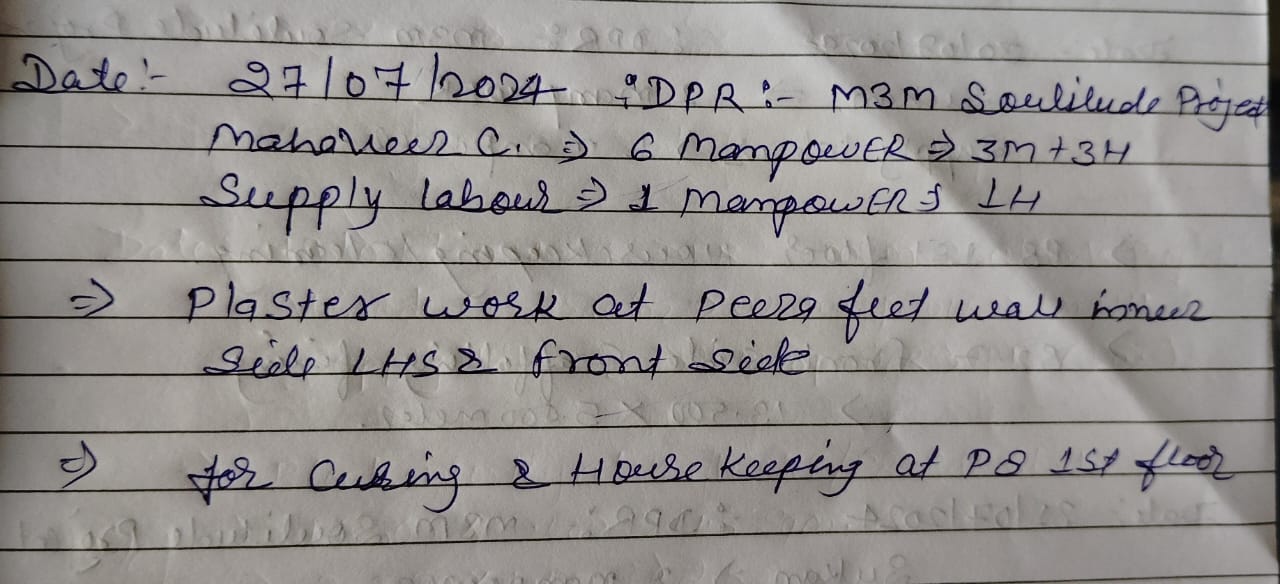 Date:- 27/07/2024 :DPR:- M3M Soulilude Project
Mahaveer C. => 6 Manpower => 3M+3H
Supply labour => 1 Manpower => 1H
=> Plaster work at Peera feet wall inner
Side LHS & front side
=> for Curing & House Keeping at P8 1st floor